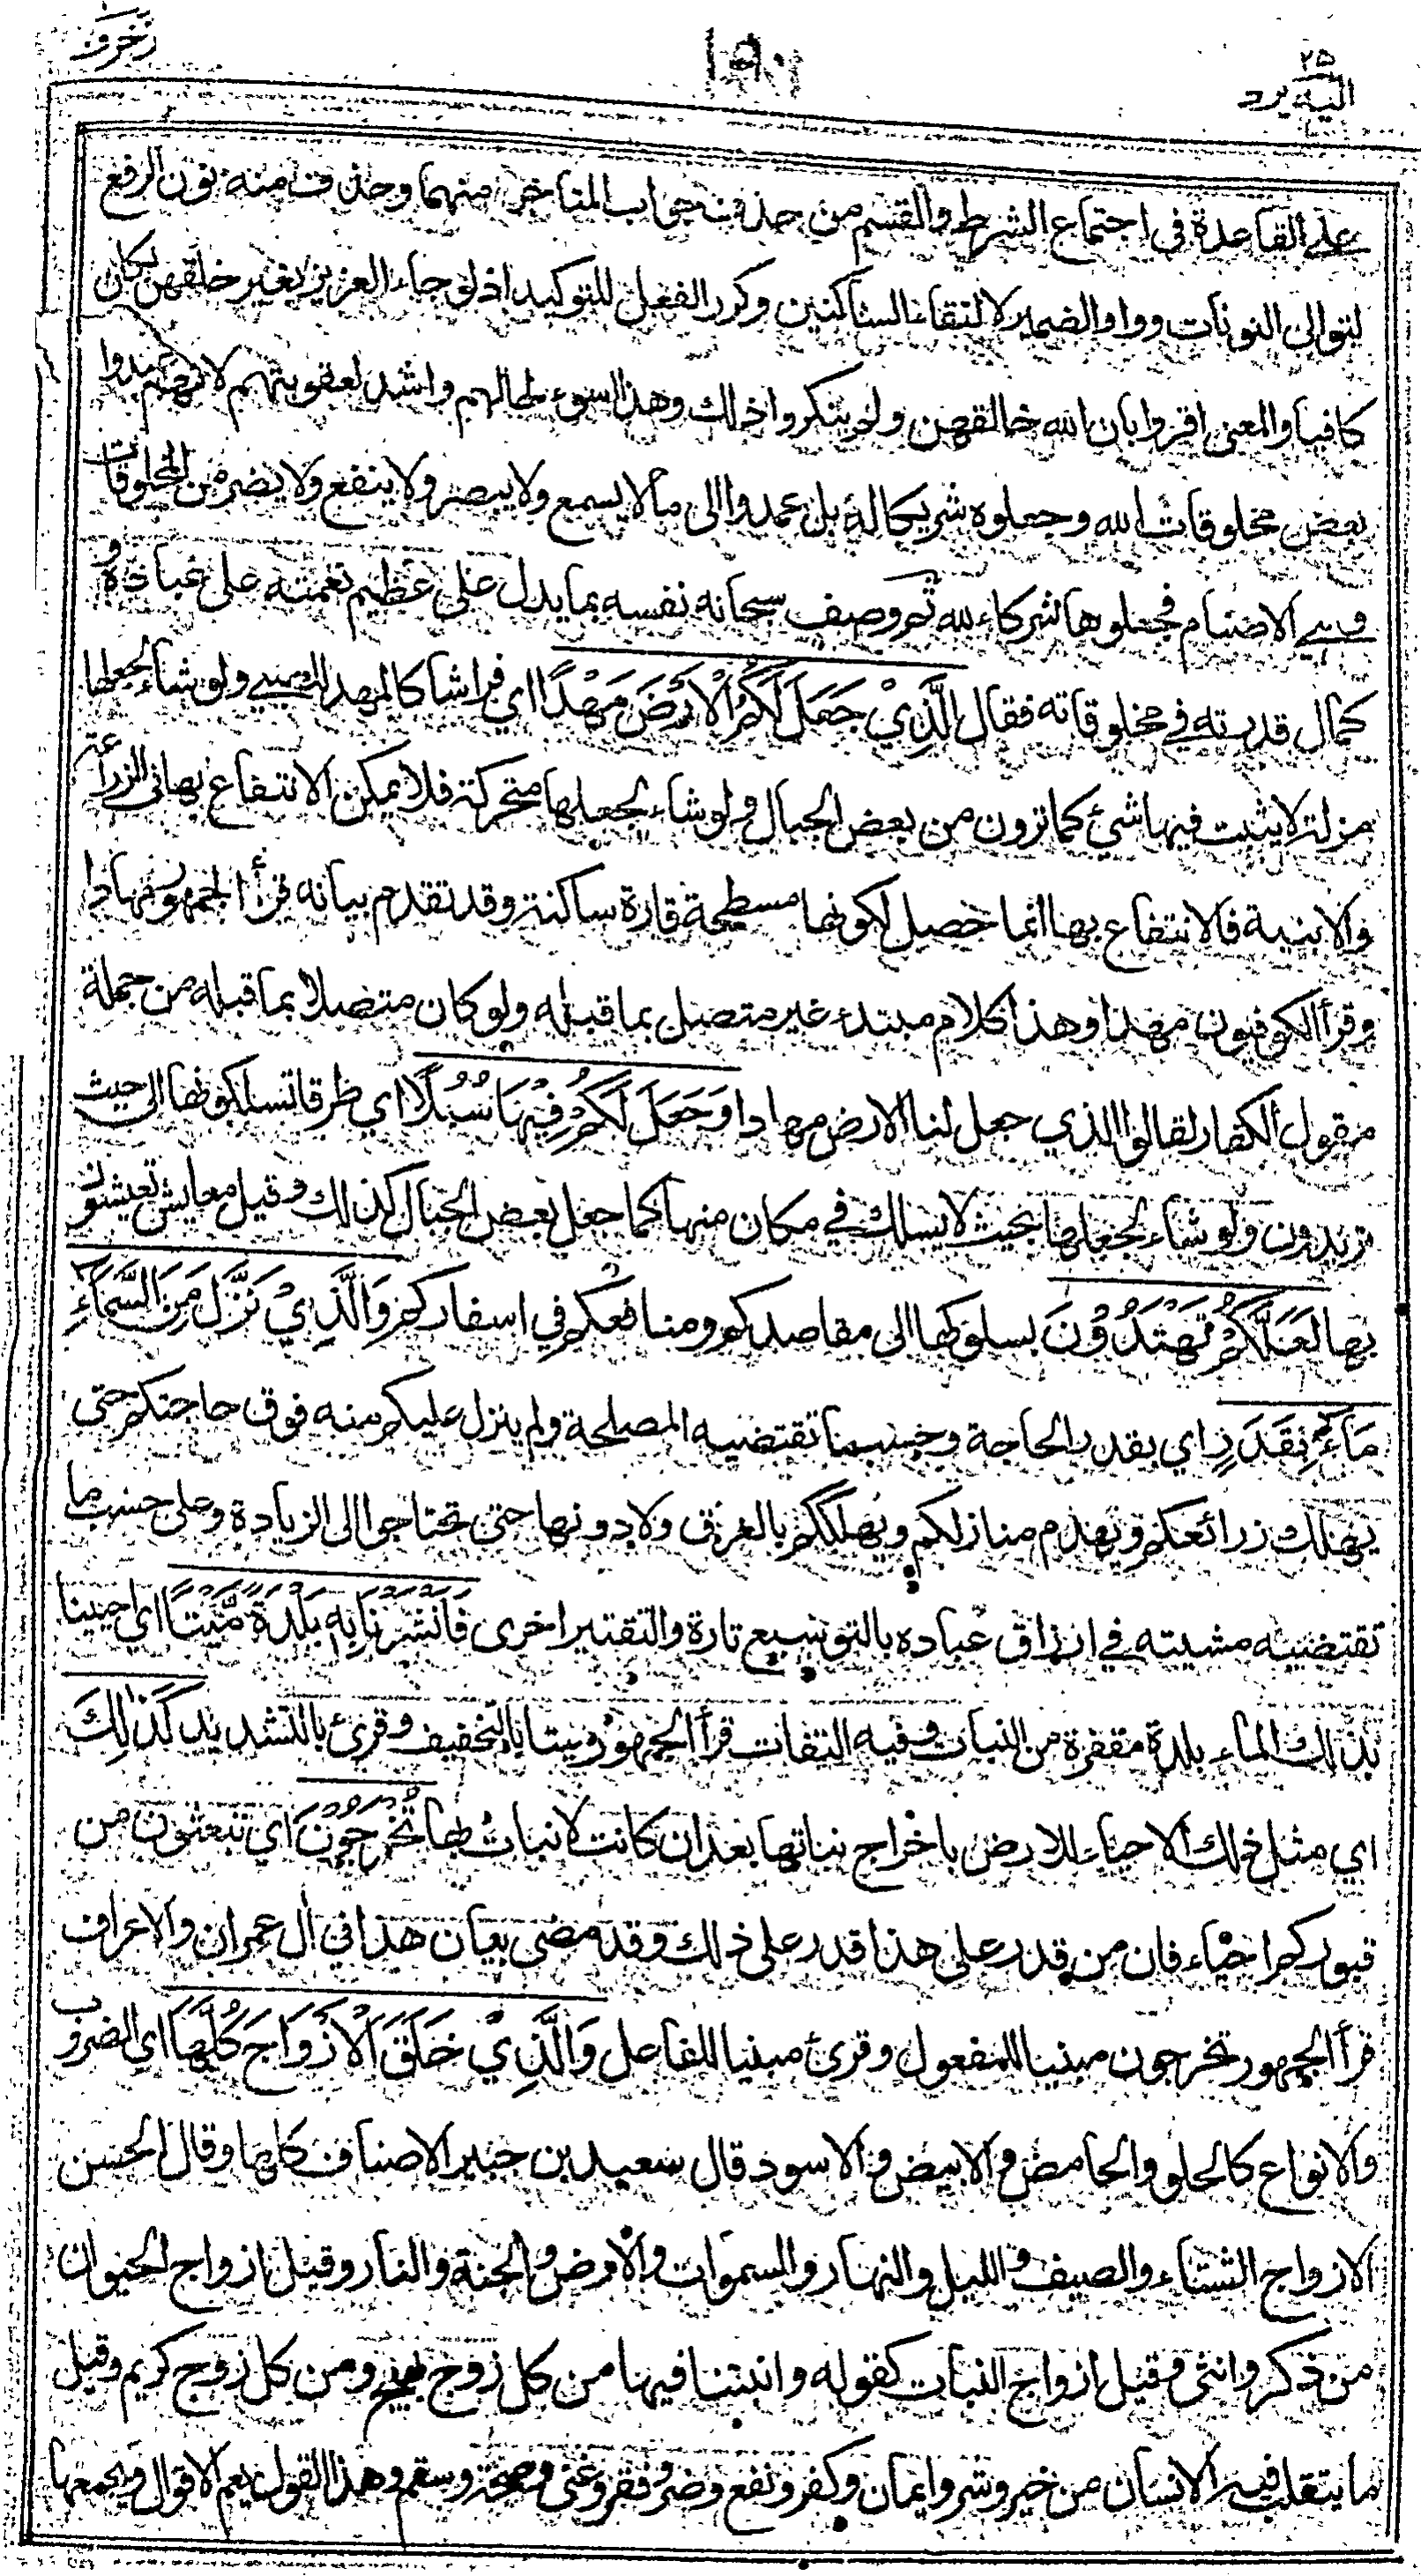 ٢٥
اليه يرد
١٩٠
زخرف
على القاعدة في اجتماع الشرط والقسم من حذف جواب المتأخر منهما وحذفت منه نون الرفع
لتوالي النونات وواو الضمير لالتقاء الساكنين وكرر الفعل للتوكيد اذ لو جاء العزيز بغير خلقهن لكان
كافيا والمعنى اقروا بان الله خالقهن ولم ينكروا ذلك وهذا اسوء لحالهم واشد لعقوبتهم لانهم عبدوا
بعض مخلوقات الله وجعلوه شريكا له بل عمدوا الى ما لا يسمع ولا يبصر ولا ينفع ولا يضر من المخلوقات
وهي الاصنام فجعلوها شركاء لله ثم وصف سبحانه نفسه بما يدل على عظيم نعمته على عباده و
كمال قدرته في مخلوقاته فقال الَّذِيْ جَعَلَ لَكُمُ الْاَرْضَ مَهْدًا اي فراشا كالمهد للصبي ولو شاء لجعلها
مزلة لا يثبت فيها شيئ كما ترون من بعض الجبال ولو شاء لجعلها متحركة فلا يمكن الانتفاع بها في الزراعة
والابنية فالانتفاع بها انما حصل لكونها مسطحة قارة ساكنة وقد تقدم بيانه قرأ الجمهور مهادا
وقرأ الكوفيون مهدا وهذا كلام مبتدء غير متصل بما قبله ولو كان متصلا بما قبله من جملة
مقول الكفار لقالوا الذي جعل لنا الارض مهادا وَجَعَلَ لَكُمْ فِيْهَا سُبُلًا اي طرقا تسلكونها الى حيث
تريدون ولو شاء لجعلها بحيث لا يسلك في مكان منها كما جعل بعض الجبال كذلك وقيل معايش تعيشون
بها لَعَلَّكُمْ تَهْتَدُوْنَ بسلوكها الى مقاصدكم ومنافعكم في اسفاركم وَالَّذِيْ نَزَّلَ مِنَ السَّمَاءِ
مَاءً بِقَدَرٍ اي بقدر الحاجة وحسبما تقتضيه المصلحة ولم ينزل عليكم منه فوق حاجتكم حتى
يهلك زرائعكم ويهدم منازلكم ويهلككم بالغرق ولا دونها حتى تحتاجوا الى الزيادة وعلى حسب ما
تقتضيه مشيته في ارزاق عباده بالتوسيع تارة والتقتير اخرى فَاَنْشَرْنَا بِهٖ بَلْدَةً مَّيْتًا اي احيينا
بذلك الماء بلدة مقفرة من النبات وفيه التفات قرأ الجمهور ميتا بالتخفيف وقرئ بالتشديد كَذٰلِكَ
اي مثل ذلك الاحياء للارض باخراج نباتها بعد ان كانت لا نبات بها تُخْرَجُوْنَ اي تبعثون من
قبوركم احياء فان من قدر على هذا قدر على ذلك وقد مضى بيان هذا في ال عمران والاعراف
قرأ الجمهور تخرجون مبنيا للمفعول وقرئ مبنيا للفاعل وَالَّذِيْ خَلَقَ الْاَزْوَاجَ كُلَّهَا اي الضروب
والانواع كالحلو والحامض والابيض والاسود قال سعيد بن جبير الاصناف كلها وقال الحسن
الازواج الشتاء والصيف والليل والنهار والسموات والارض والجنة والنار وقيل ازواج الحيوان
من ذكر وانثى وقيل ازواج النبات كقوله وانبتنا فيها من كل زوج بهيج ومن كل زوج كريم وقيل
ما يتقلب فيه الانسان من خير وشر وايمان وكفر ونفع وضر وفقر وغنى وصحة وسقم وهذا القول يعم الاقوال ويجمعها